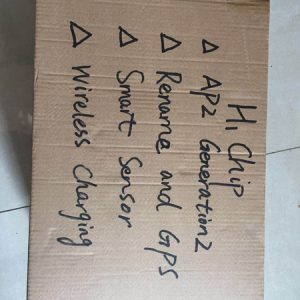 Hi Chip
△ AP2 Generation2
△ Rename and GPS
△ Smart Sensor
△ Wireless Charging